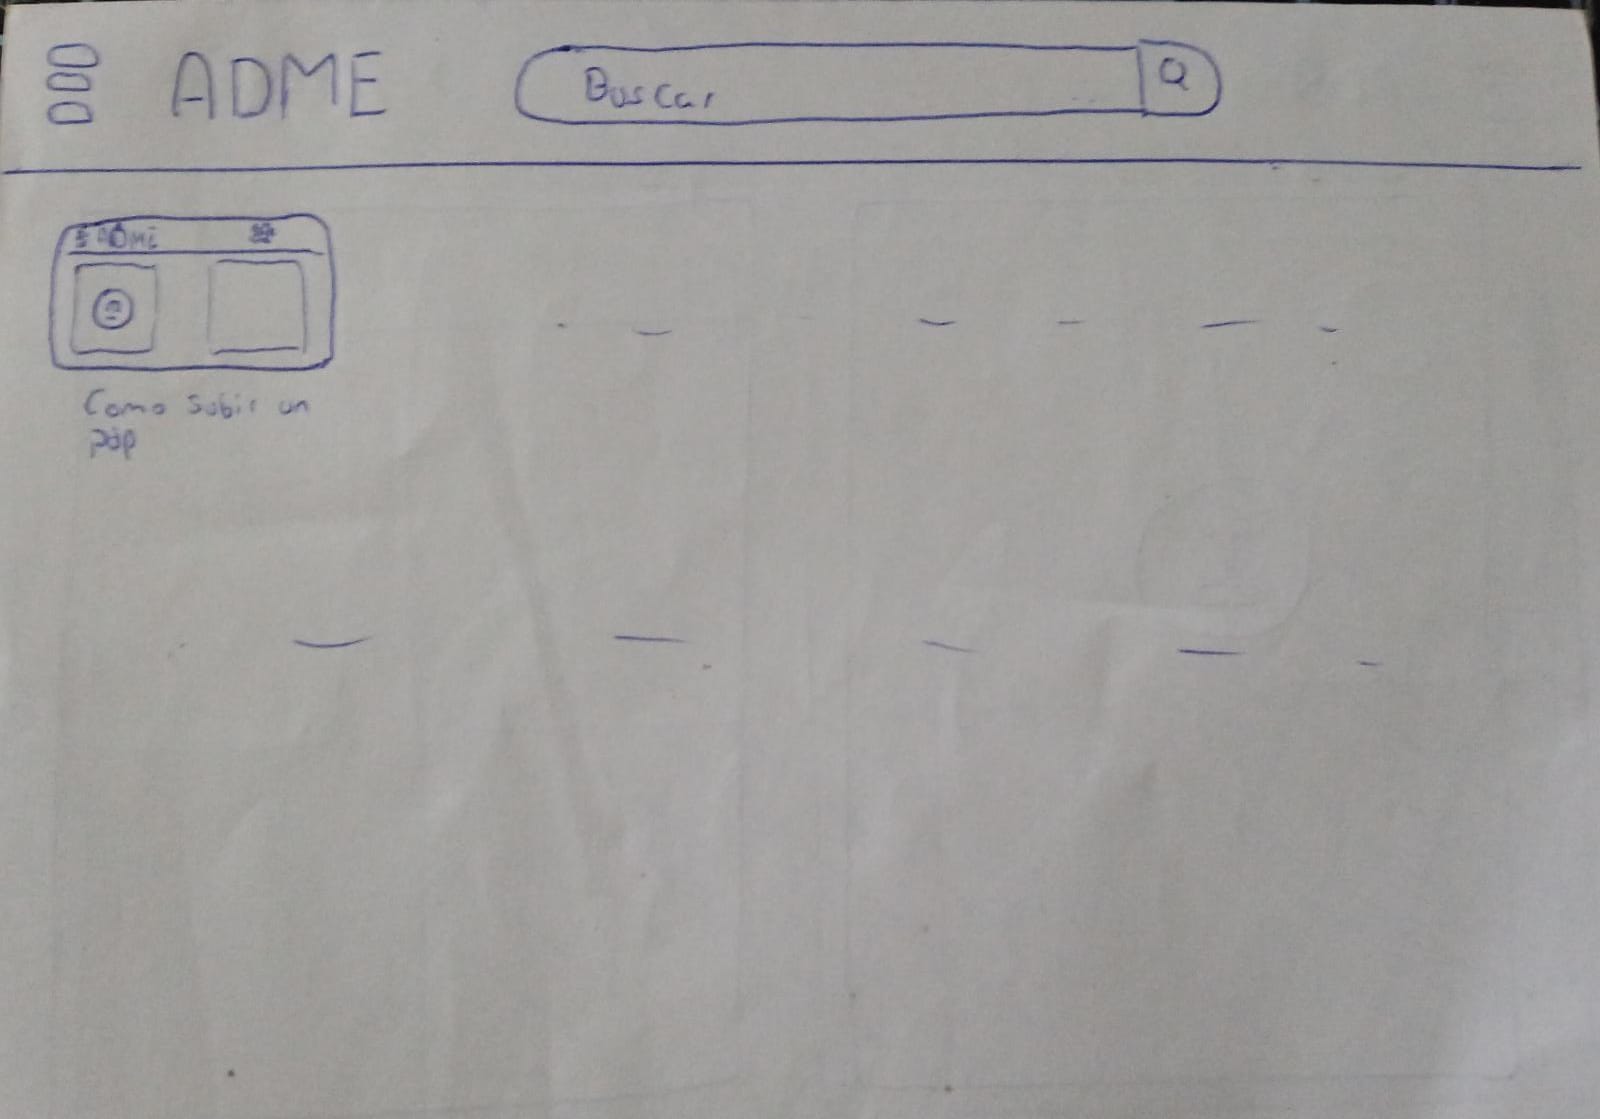 ADME
Buscar
ADME
Como subir un
pdp